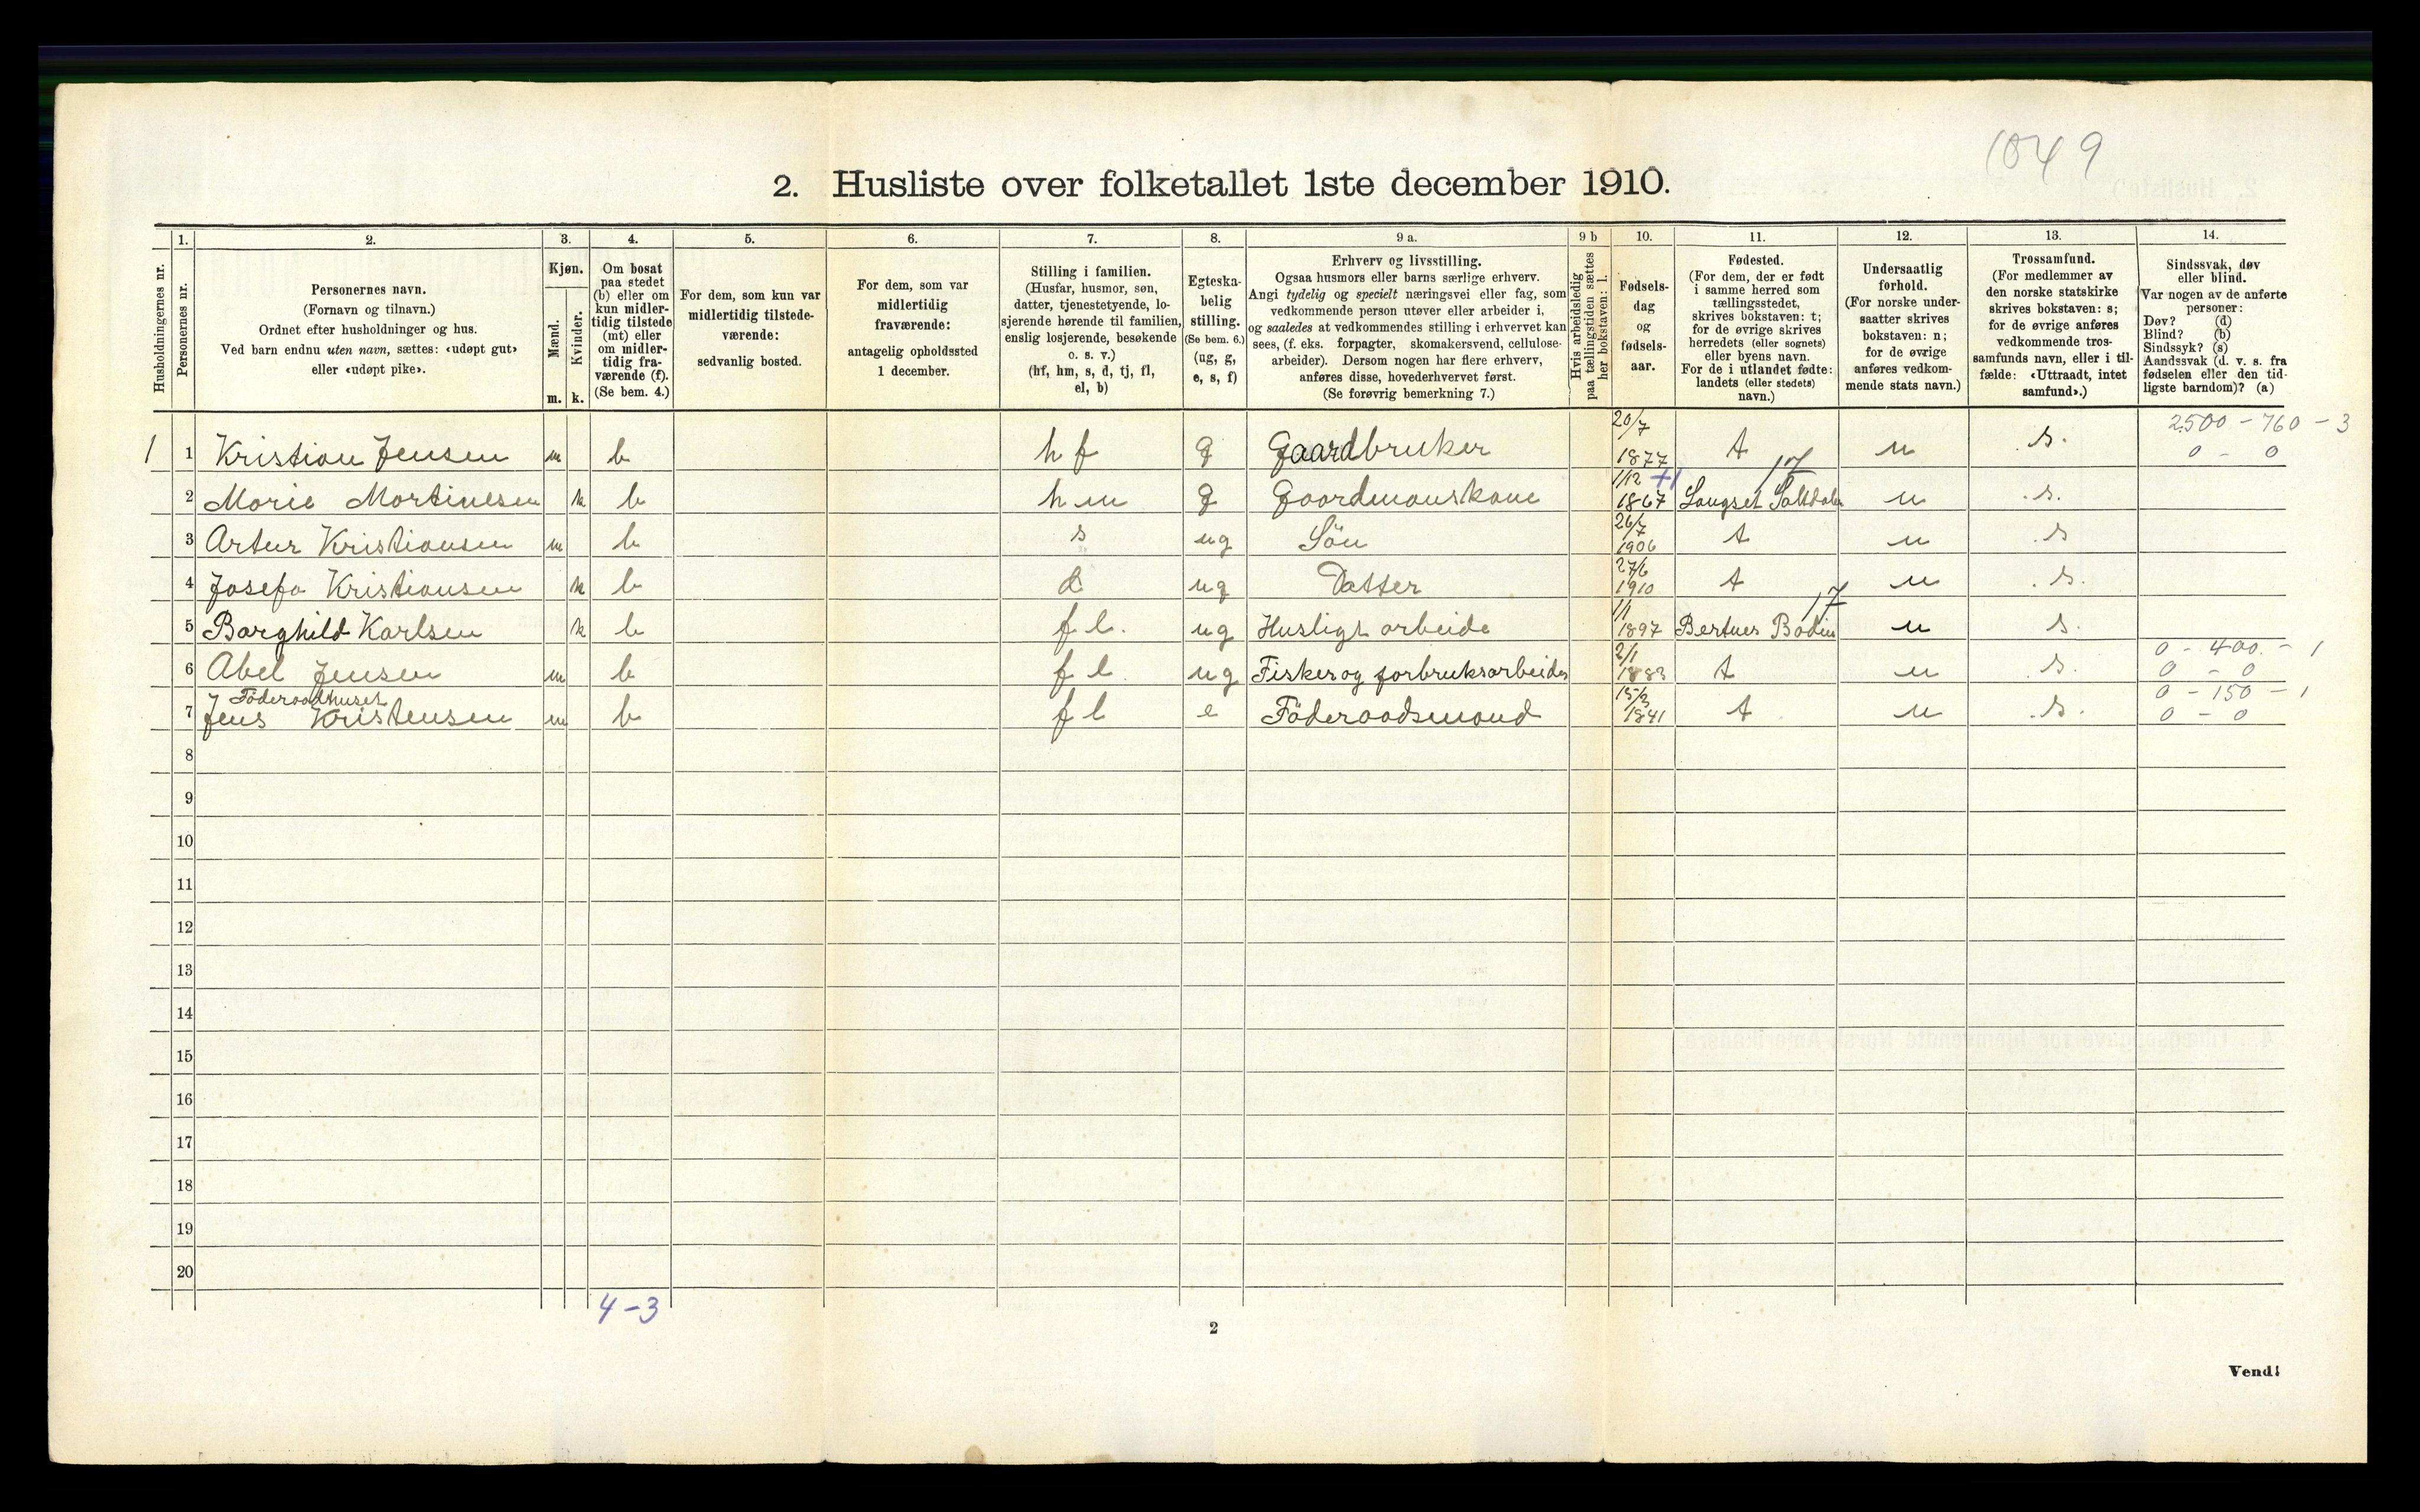 1049
2. Husliste over folketallet 1ste december 1910.
Husholdningernes nr.
1.
Personernes nr.
2.
Personernes navn.
(Fornavn og tilnavn.)
Ordnet efter husholdninger og hus.
Ved barn endnu uten navn, sættes: «udøpt gut»
eller «udøpt pike».
3.
Kjøn.
Mænd.
Kvinder.
m. k.
4.
Om bosat
paa stedet
(b) eller om
kun midler-
tidig tilstede
(mt) eller
om midler-
tidig fra-
værende (f).
(Se bem. 4.)
5.
For dem, som kun var
midlertidig tilstede-
værende:
sedvanlig bosted.
6.
For dem, som var
midlertidig
fraværende:
antagelig opholdssted
1 december.
7.
Stilling i familien.
(Husfar, husmor, søn,
datter, tjenestetyende, lo-
sjerende hørende til familien,
enslig losjerende, besøkende
o. s. v.)
(hf, hm, s, d, tj, fl,
el, b)
8.
Egteska-
belig
stilling.
(Se bem. 6.)
(ug, g,
e, s, f)
9 a.
Erhverv og livsstilling.
Ogsaa husmors eller barns særlige erhverv.
Angi tydelig og specielt næringsvei eller fag, som
vedkommende person utøver eller arbeider i,
og saaledes at vedkommendes stilling i erhvervet kan
sees, (f. eks. forpagter, skomakersvend, cellulose-
arbeider). Dersom nogen har flere erhverv,
anføres disse, hovederhvervet først.
(Se forøvrig bemerkning 7.)
9 b
Hvis arbeidsledig
paa tællingstiden sættes
her bokstaven: l.
10.
Fødsels-
dag
og
fødsels-
aar.
11.
Fødested.
(For dem, der er født
i samme herred som
tællingsstedet,
skrives bokstaven: t;
for de øvrige skrives
herredets (eller sognets)
eller byens navn.
For de i utlandet fødte:
landets (eller stedets)
navn.)
12.
Undersaatlig
forhold.
(For norske under-
saatter skrives
bokstaven: n;
for de øvrige
anføres vedkom-
mende stats navn.)
13.
Trossamfund.
(For medlemmer av
den norske statskirke
skrives bokstaven: s;
for de øvrige anføres
vedkommende tros-
samfunds navn, eller i til-
fælde: «Uttraadt, intet
samfund».)
14.
Sindssvak, døv
eller blind.
Var nogen av de anførte
personer:
Døv? (d)
Blind? (b)
Sindssyk? (s)
Aandssvak (d. v. s. fra
fødselen eller den tid-
ligste barndom)? (a)
2500 - 760 - 3
1 1 Kristian Jensen m b hf g Gaardbruker 20/7 1877 t n s. 0 - 0
17
2 Marie Martinesen k b hm g Gaardmanskone 1/12 +1 1867 Langset Saltdalen n s.
3 Artur Kristiansen m b s ug Sön 26/7 1906 t n s
4 Josefa Kristiansen k b d ug Datter 27/6 1910 t n s.
17
5 Borghild Karlsen k b fl. ug Husligt arbeide 1/1 1897 Bertnes Bodin n s.
0 - 400. - 1
6 Abel Jensen m b fl ug Fisker og jorbruksarbeider 2/1 1883 t n s. 0 - 0
I Föderaadhuset
0 - 150 - 1
7 Jens Kristensen m b fl e Föderaadsmand 15/3 1841 t n s. 0 - 0
8
9
10
11
12
13
14
15
16
17
18
19
20
4 - 3
2
Vend!